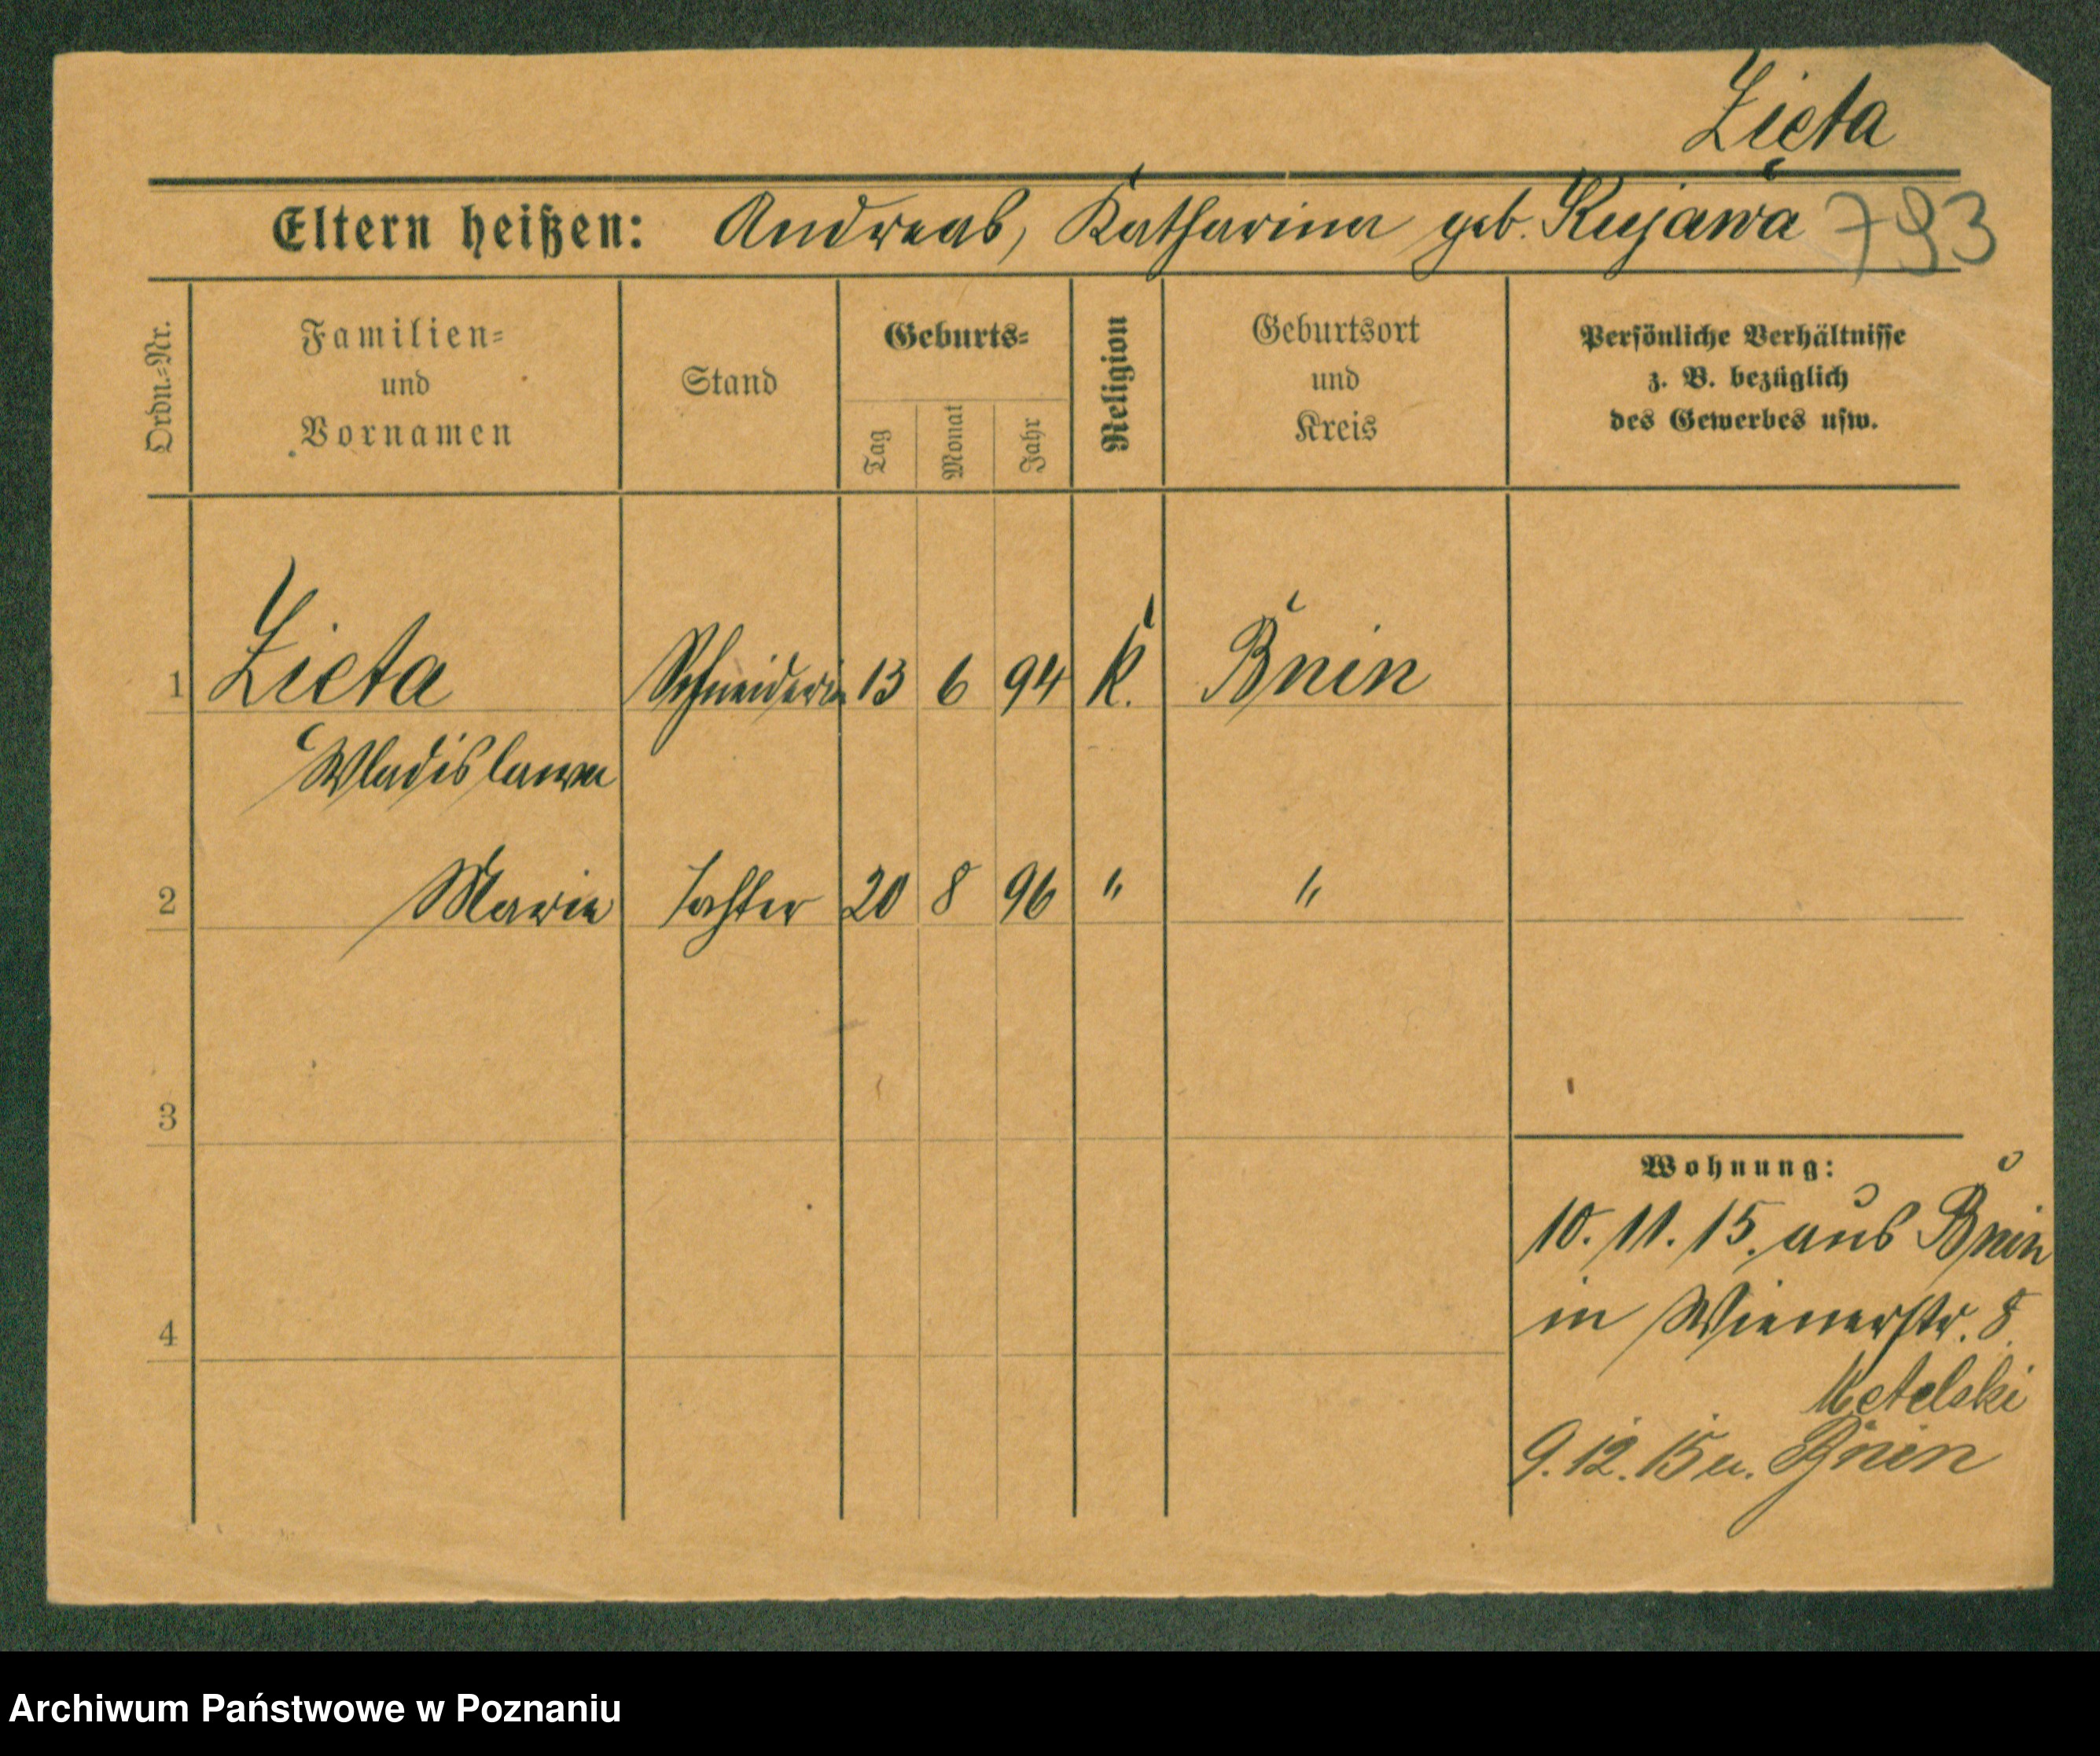 Zięta
Eltern heißen: Andreas, Katharina geb. Kujawa 793
Ordn.=Nr.
Familien=
und
Vornamen
Stand
Geburts=
Tag
Monat
Jahr
Religion
Geburtsort
und
Kreis
Persönliche Verhältnisse
z. B. bezüglich
des Gewerbes usw.
1 Zieta Schneiderin 13 6 94 k. Bnin
Wladislawa
2 Marie Tochter 20 8 96 " "
3
4
Wohnung:
10. 11. 15. aus Bnin
in Wienerstr. 8.
Metelski
9. 12. 15 n. Bnin
Archiwum Państwowe w Poznaniu